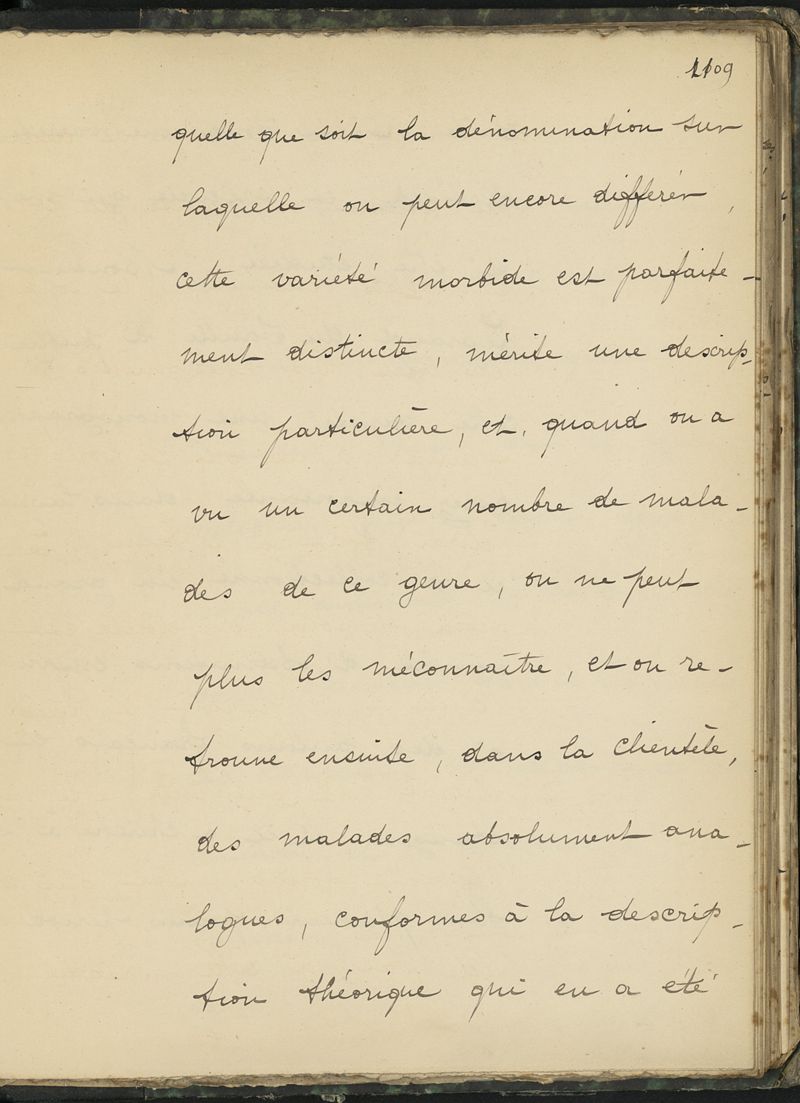 1109
quelle que soit la dénomination sur
laquelle on peut encore différer,
cette variété morbide est parfaite-
ment distincte, mérite une descrip-
tion particulière, et, quand on a
vu un certain nombre de mala-
des de ce genre, on ne peut
plus les méconnaître, et on re-
trouve ensuite, dans la clientèle,
des malades absolument ana-
logues, conformes à la descrip-
tion théorique qui en a été